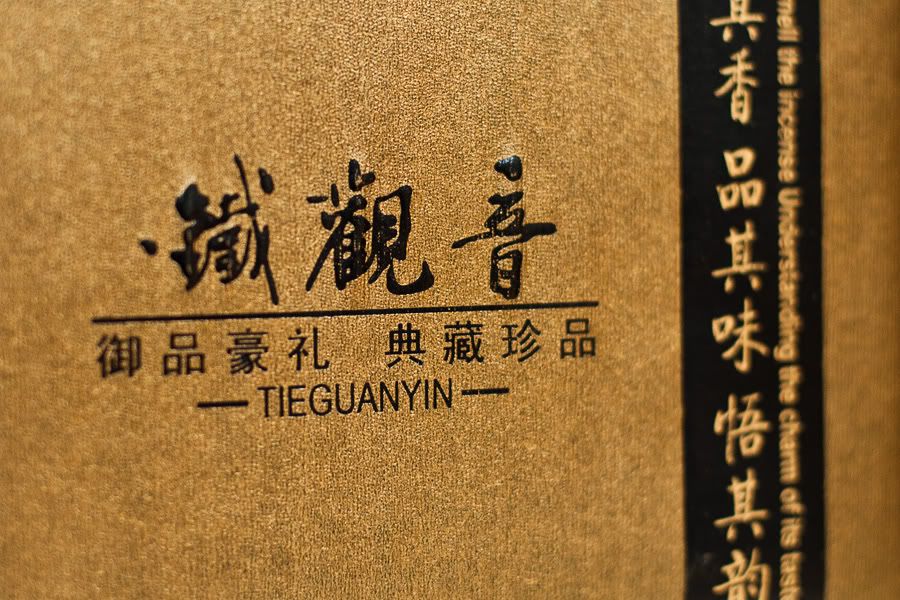 鐵觀音
御品豪礼 典藏珍品
TIEGUANYIN
其香 品其味 悟其韵
mell the incense Understanding the charm of its taste